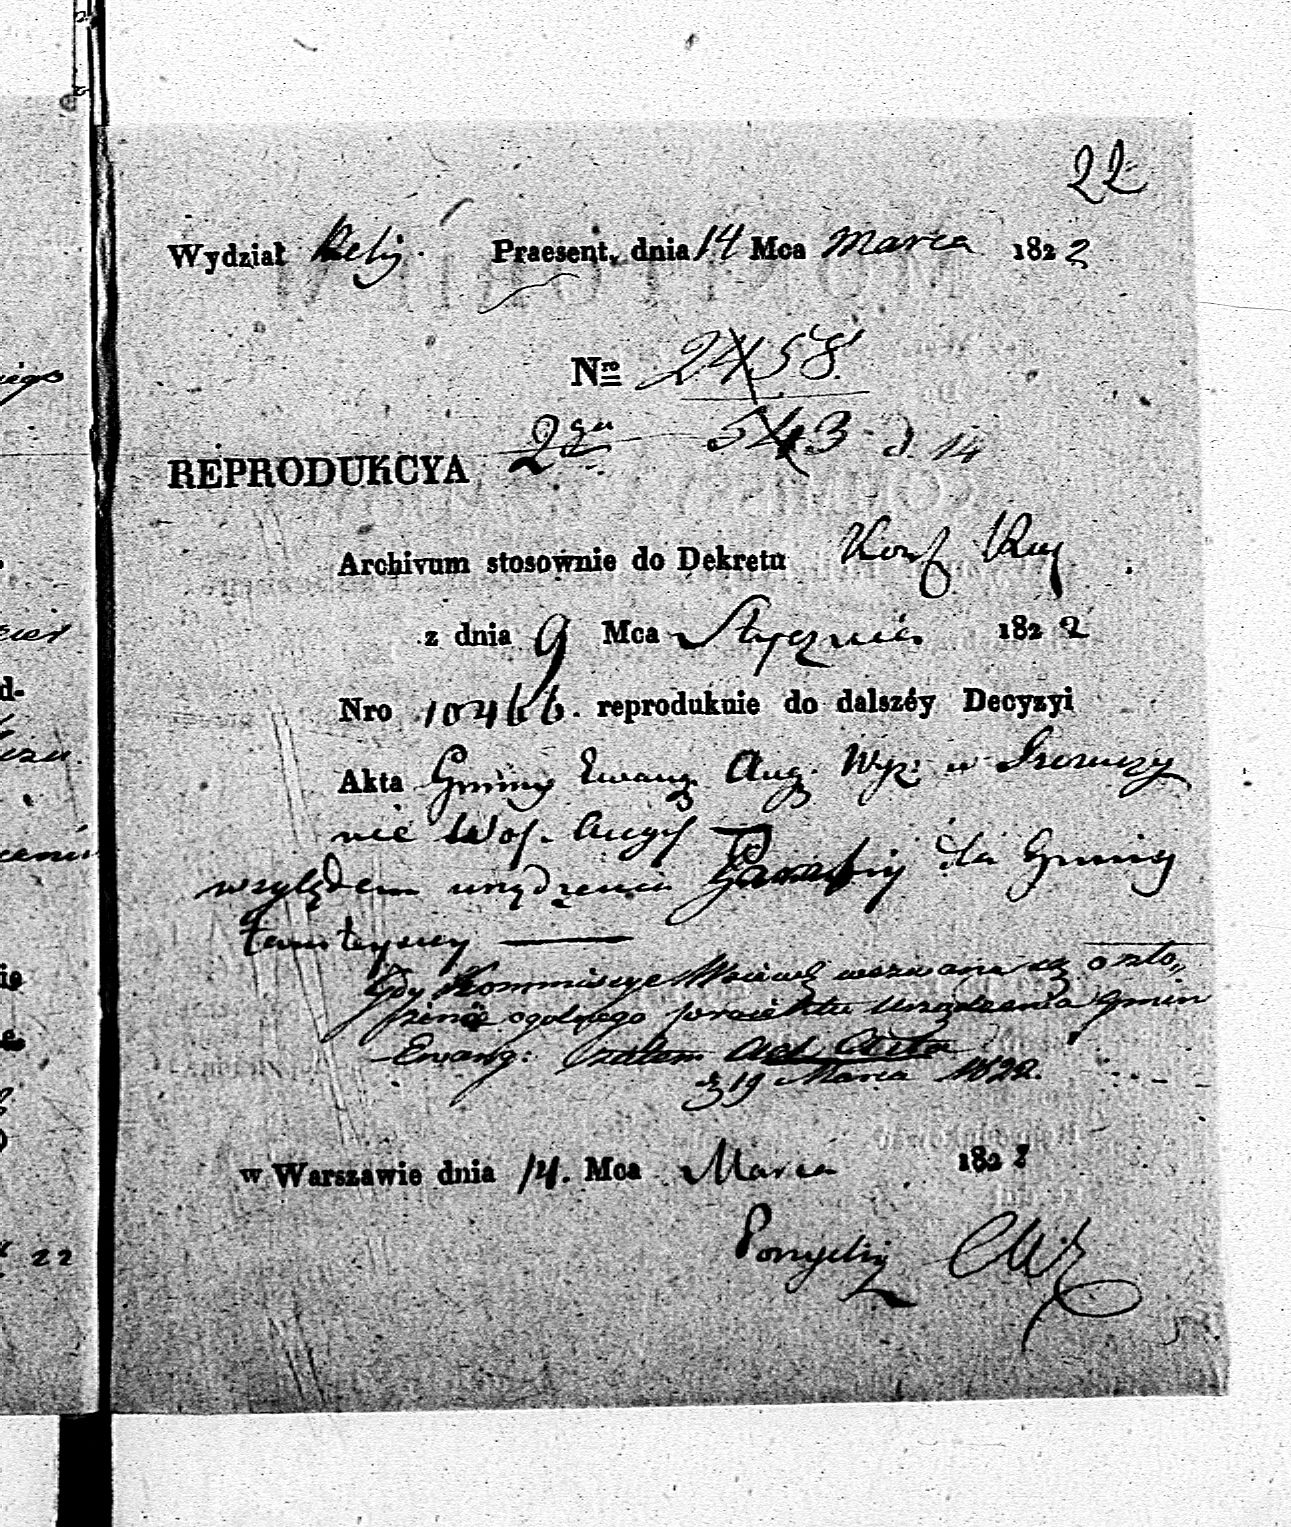 22
Wydział Relig. Praesent. dnia 14 Mca Marca 1822
Nro 2458
543 d. 14
REPRODUKCYA 2ga
Archivum stosownie do Dekretu
z dnia 9 Mca Stycznia 1822
Nro 10466. reprodukuie do dalszéy Decyzyi
Akta Gminy Ewang. Aug. Wyz: w
nie Woj. Augus
względem urządzenia Parafiy dla Gminy
tamteyszey
Gdy Kommissye wezwane są o zło„
żenie ogólnego proiektu urządzenia Gmin
Ewang: zatem ad Acta
d 19 Marca 1822.
w Warszawie dnia 14. Mca Marca 1822